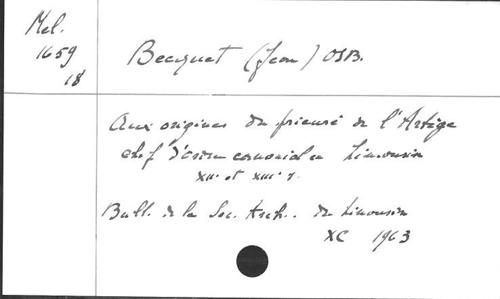 Mel.
1659
18
Becquet (Jean) OSB.
Aux origines du prieuré de l'Artige
chef d'ordre canonial en Limousin
XIIe et XIIIe s.
Bull. de la Soc. Arch. du Limousin
XC 1963